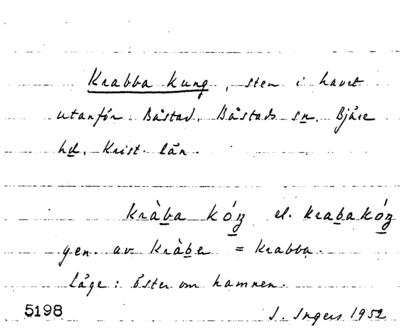 Krabba kung, sten i havet
utanför Båstad, Båstads sn, Bjäre
hd, Krist. län.
kràba kóꝫ el. krabakóꝫ
gen. av kràbe = krabba.
Läge: öster om hamnen.
5198 I. Ingers 1952